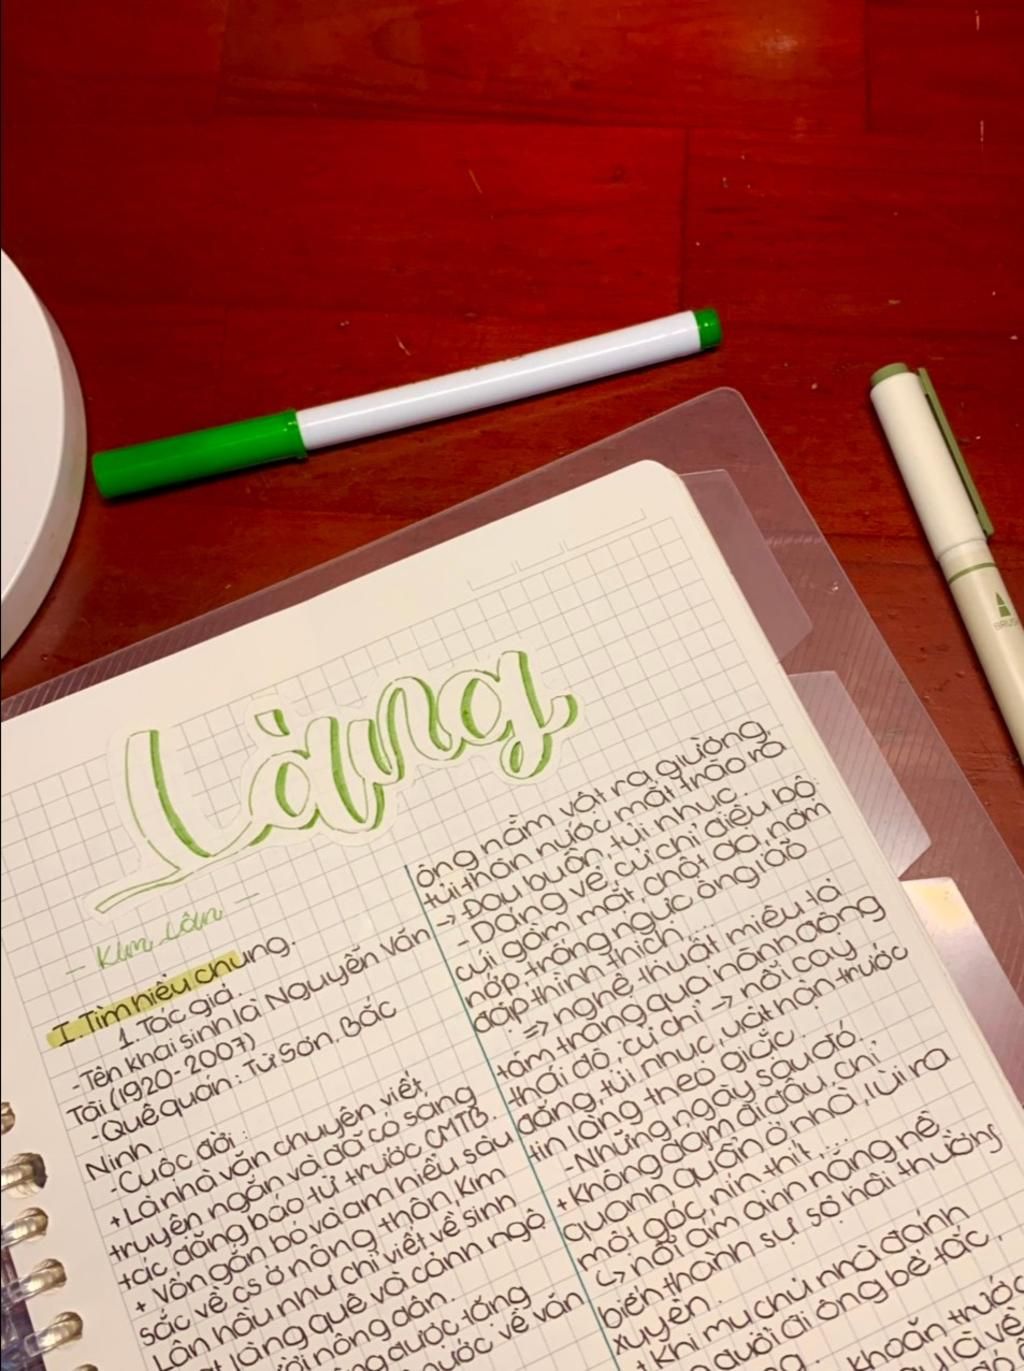 Làng
- Kim Lân -
I. Tìm hiểu chung.
1. Tác giả.
- Tên khai sinh là Nguyễn Văn
Tài (1920-2007)
- Quê quán: Từ Sơn, Bắc
Ninh.
- Cuộc đời:
+ Là nhà văn chuyên viết
truyện ngắn và đã có sáng
tác đăng báo từ trước CMT8.
+ Vốn gắn bó và am hiểu sâu
sắc về cs ở nông thôn, Kim
Lân hầu như chỉ viết về sinh
hoạt làng quê và cảnh ngộ
người nông dân.
được tặng
nước về văn
ông nằm vật ra giường,
tủi thân nước mắt trào ra
-> Đau buồn, tủi nhục.
- Dáng vẻ, cử chỉ, điệu bộ:
cúi gằm mặt, chột dạ, nơm
nớp, trống ngực ông lão
đập thình thịch....
=> nghệ thuật miêu tả
tâm trạng qua hành động
thái độ, cử chỉ -> nỗi cay
đắng, tủi nhục, uất hận trước
tin làng theo giặc.
- Những ngày sau đó.
+ Không dám đi đâu, chỉ
quanh quẩn ở nhà, lùi ra
một góc, nín thít,....
↳ nỗi ám ảnh nặng nề
biến thành sự sợ hãi thường
xuyên.
+ Khi mụ chủ nhà đánh
đuổi đi ông bế tắc,
khoăn trước
BRUSH